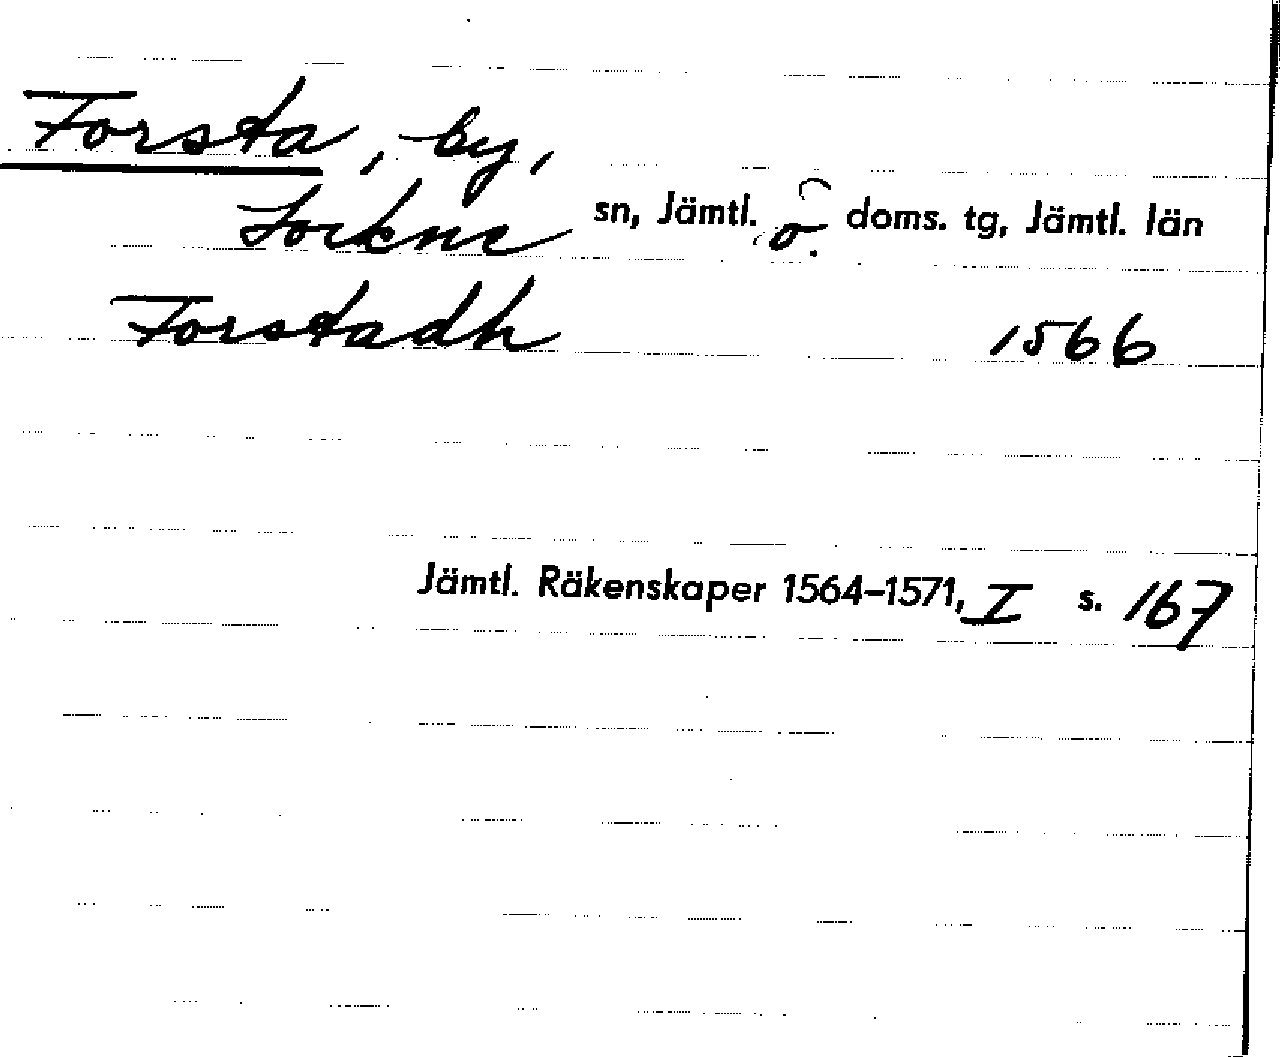 Forsta, by,
Lockne sn, Jämtl. ö. doms. tg, Jämtl. län
Forstadh 1566
Jämtl. Räkenskaper 1564–1571, I s. 167